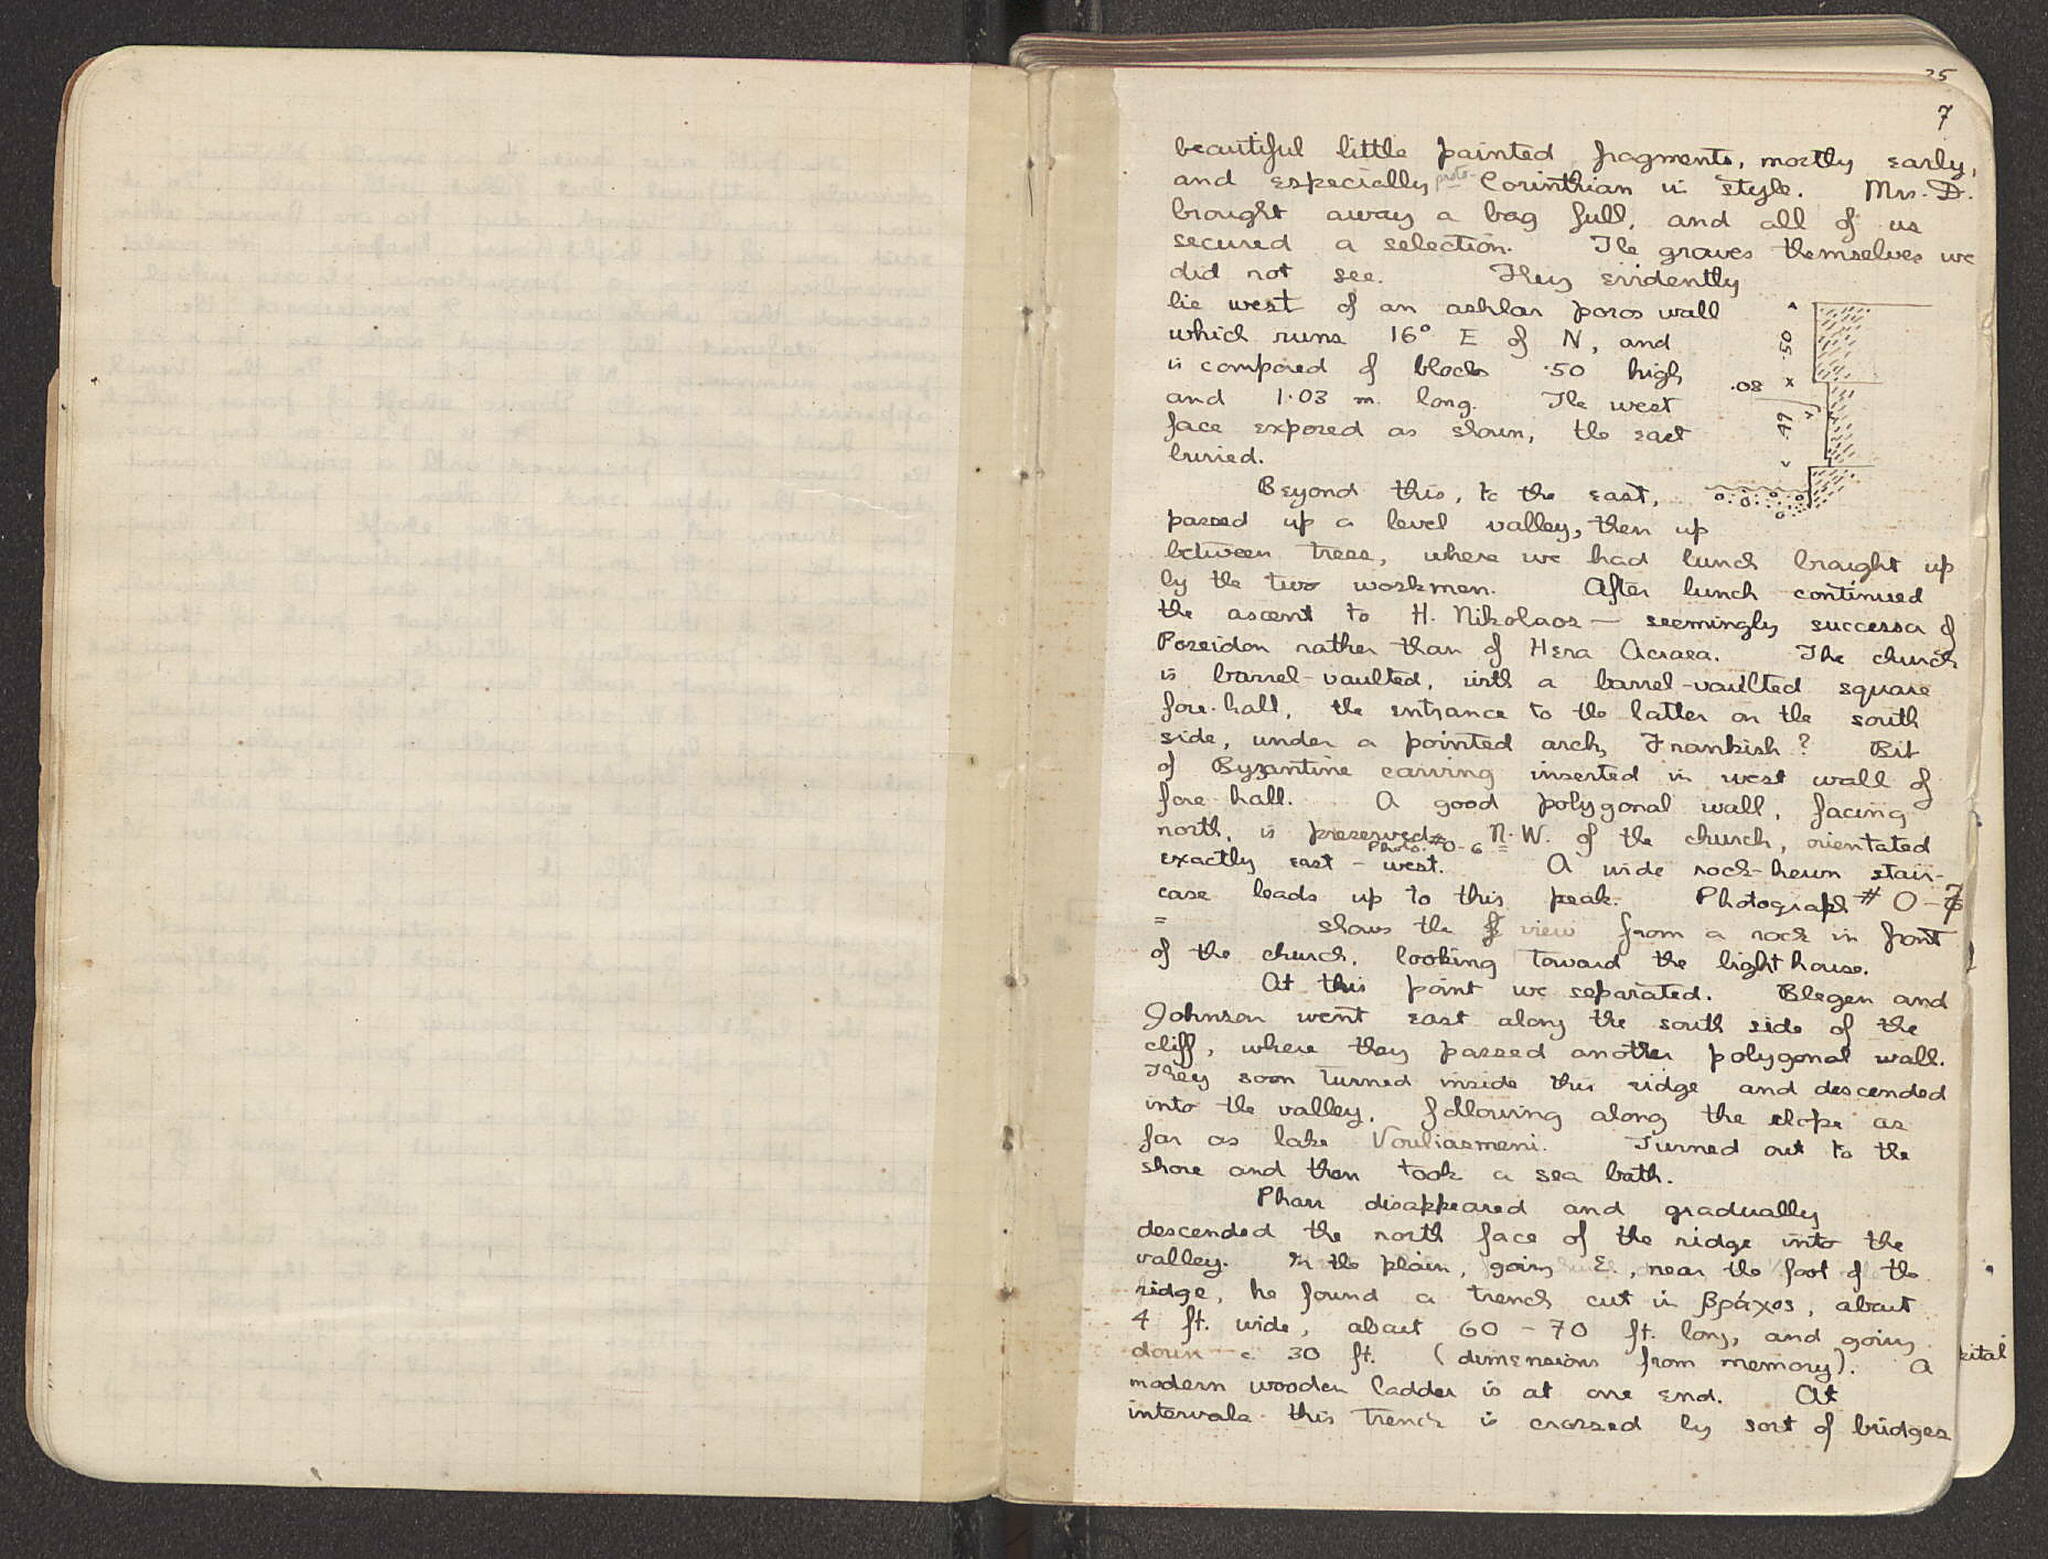 25
7
beautiful little painted fragments, mostly early,
and especially proto-Corinthian in style. Mrs. D.
brought away a bag full, and all of us
secured a selection. The graves themselves we
did not see. They evidently
lie west of an ashlar poros wall
which runs 16° E of N, and
is composed of blocks .50 high
and 1.03 m. long. The west
face exposed as shown, the east
buried.
.50
.08
.49
Beyond this, to the east,
passed up a level valley, then up
between trees, where we had lunch brought up
by the two workmen. After lunch continued
the ascent to H. Nikolaos — seemingly successor of
Poseidon rather than of Hera Acraea. The church
is barrel-vaulted, with a barrel-vaulted square
fore-hall, the entrance to the latter on the south
side, under a pointed arch, Frankish? Bit
of Byzantine carving inserted in west wall of
fore-hall. A good polygonal wall, facing
north, is preserved N.W. of the church, orientated
Photo. #0-6
exactly east-west. A wide rock-hewn stair-
case leads up to this peak. Photograph # 0-7
= shows the view from a rock in front
of the church, looking toward the lighthouse.
At this point we separated. Blegen and
Johnson went east along the south side of the
cliff, where they passed another polygonal wall.
They soon turned inside this ridge and descended
into the valley, following along the slope as
far as lake Vouliasmeni. Turned out to the
shore and then took a sea bath.
Pharr disappeared and gradually
descended the north face of the ridge into the
valley. In the plain, going E., near the foot of the
ridge, he found a trench cut in βράχος, about
4 ft. wide, about 60-70 ft. long, and going
down c. 30 ft. (dimensions from memory). A
modern wooden ladder is at one end. At
intervals this trench is crossed by sort of bridges